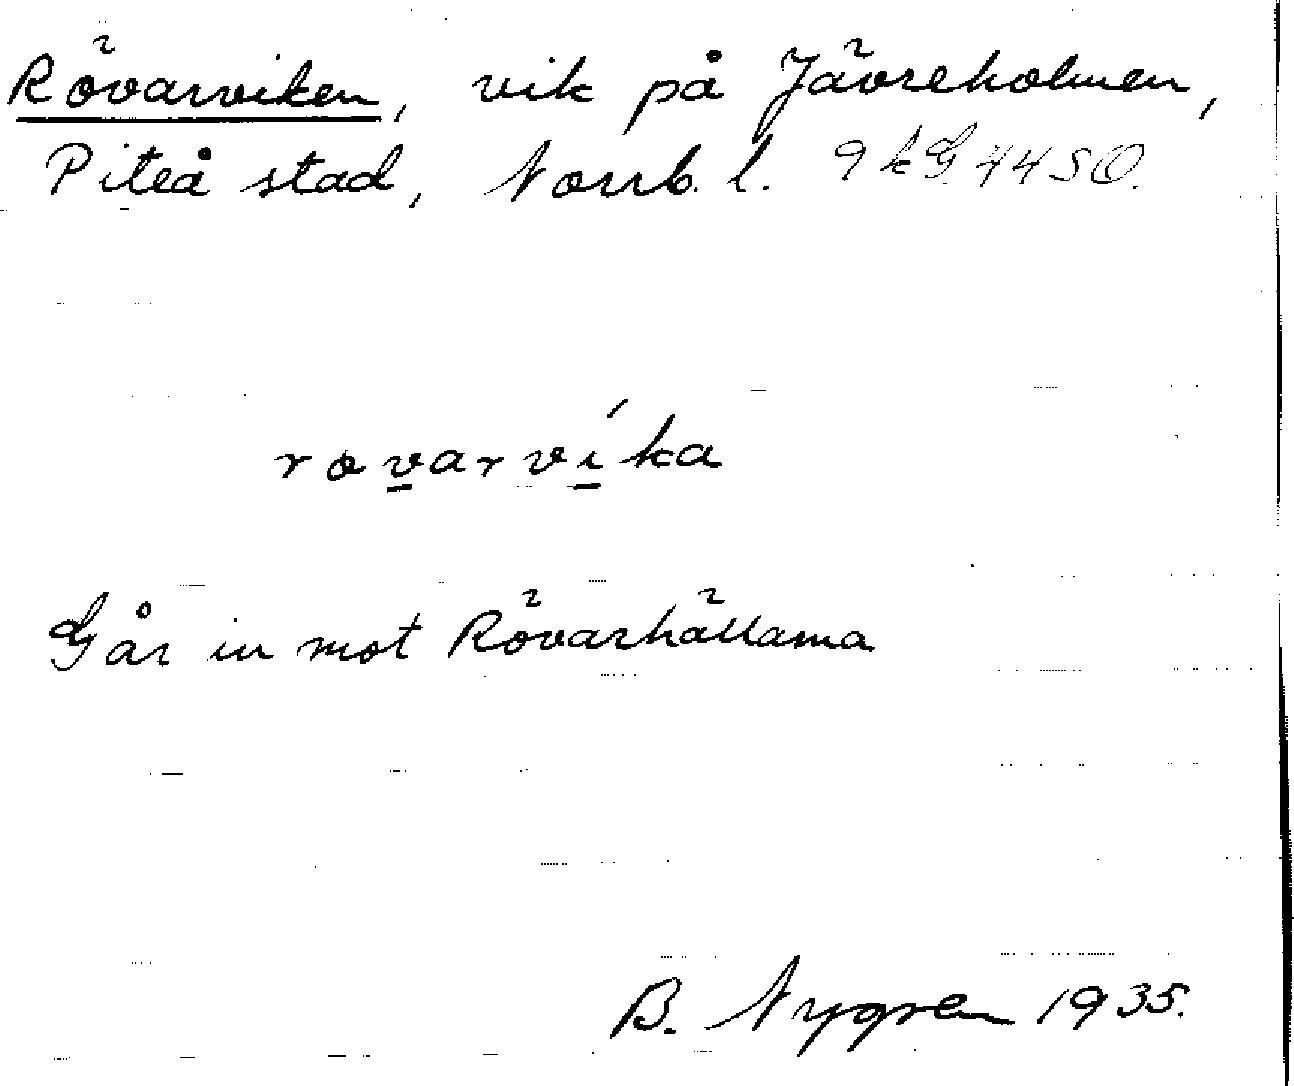 Rövarviken, vik på Jävreholmen,
Piteå stad, Norrb. l. 9 k G 44 50.
rovarvíka
Går in mot Rövarhällarna
B. Nygren 1935.